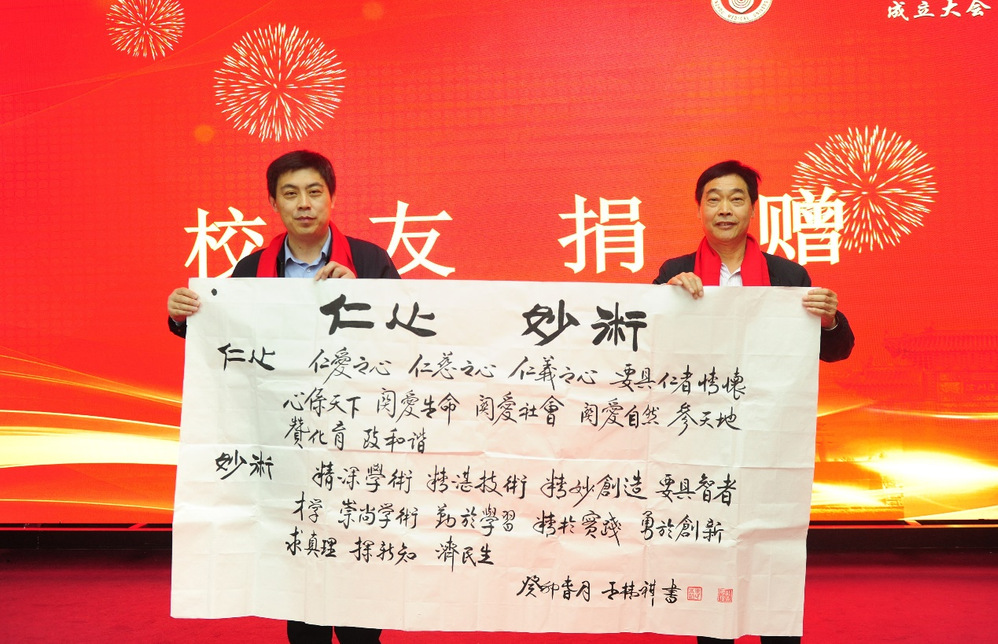 成立大会
校友捐赠
仁心 妙術
仁心 仁愛之心 仁慈之心 仁義之心 要具仁者情懷
心係天下 関愛生命 関愛社會 関愛自然 參天地
贊化育 致和谐
妙術 精深學術 精湛技術 精妙創造 要具智者
才学 崇尚学術 勤於學習 精於實踐 勇於創新
求真理 探新知 濟民生
癸卯春月 書